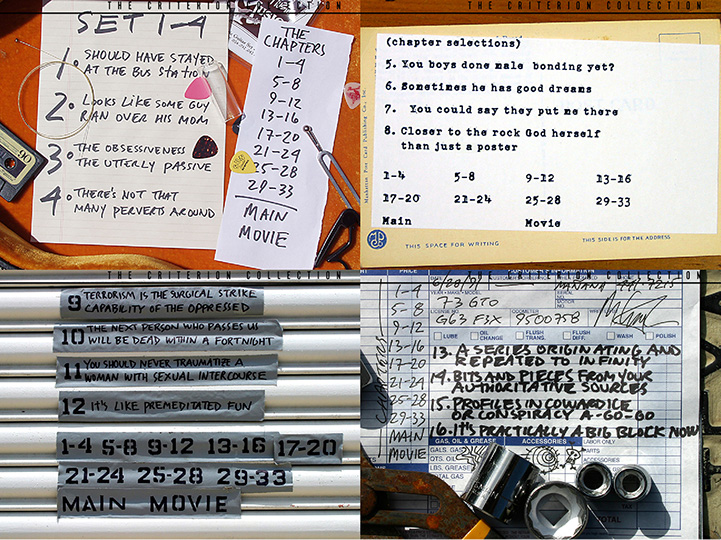 THE CRITERION COLLECTION
SET 1-4
1. SHOULD HAVE STAYED
AT THE BUS STATION
2. LOOKS LIKE SOME GUY
RAN OVER HIS MOM
3. THE OBSESSIVENESS
THE UTTERLY PASSIVE
4. THERE'S NOT THAT
MANY PERVERTS AROUND
90
THE
CHAPTERS
1-4
5-8
9-12
13-16
17-20
21-24
25-28
29-33
MAIN
MOVIE
THE CRITERION COLLECTION
(chapter selections)
5. You boys done male bonding yet?
6. Sometimes he has good dreams
7. You could say they put me there
8. Closer to the rock God herself
than just a poster
1-4 5-8 9-12 13-16
17-20 21-24 25-28 29-33
Main Movie
THIS SPACE FOR WRITING
THIS SIDE IS FOR THE ADDRESS
Manhattan Post Card Publishing Co., Inc.
THE CRITERION COLLECTION
9 TERRORISM IS THE SURGICAL STRIKE
CAPABILITY OF THE OPPRESSED
10 THE NEXT PERSON WHO PASSES US
WILL BE DEAD WITHIN A FORTNIGHT
11 YOU SHOULD NEVER TRAUMATIZE A
WOMAN WITH SEXUAL INTERCOURSE
12 IT'S LIKE PREMEDITATED FUN
1-4 5-8 9-12 13-16 17-20
21-24 25-28 29-33
MAIN MOVIE
THE CRITERION COLLECTION
PRICE
CUSTOMER INFORMATION
YEAR - MAKE - MODEL
73 GTO
LICENSE NO.
G63 F3X
ODOMETER
950075B
LUBE
OIL CHANGE
FLUSH TRANS.
FLUSH DIFF.
WASH
POLISH
CHAPTERS
1-4
5-8
9-12
13-16
17-20
21-24
25-28
29-33
MAIN
MOVIE
13. A SERIES ORIGINATING AND
REPEATED TO INFINITY
14. BITS AND PIECES FROM YOUR
AUTHORITATIVE SOURCES
15. PROFILES IN COWARDICE
OR CONSPIRACY A-GO-GO
16. IT'S PRACTICALLY A BIG BLOCK NOW
GAS, OIL & GREASE
ACCESSORIES
LABOR ONLY
PARTS
ACCESSORIES
GALS. GAS
QTS. OIL
LBS. GREASE
TOTAL